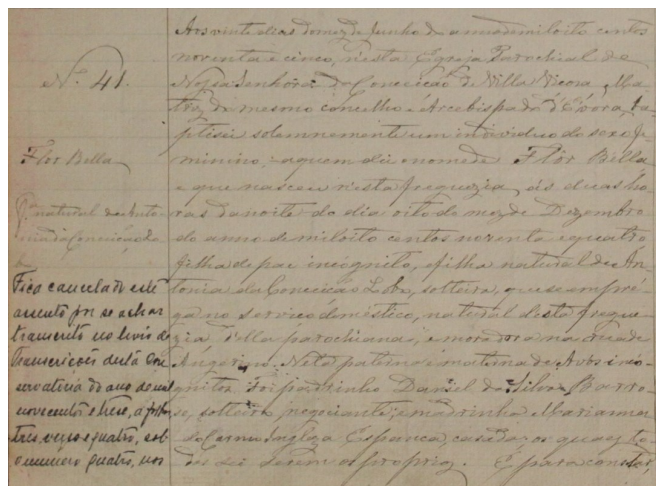 Nº 41.
Flor Bella
F. natural de Anto-
nia da Conceição Lo-
Fica cancelado este
assento por se achar
transcrito no livro de
Transcrições desta Con-
servatória do ano de mil
novecentos e três, a folhas
três, verso e quatro, sob
o número quatro, nos
Aos vinte dias do mez de Junho do anno de mil oito centos
noventa e cinco, n'esta Egreja Parochial de
Nossa Senhora da Conceição de Villa Viçosa, Ma-
triz do mesmo concelho e Arcebispado d'Evora, ba-
ptisei solemnemente um individuo do sexo fe-
minino, a quem dei o nome de Flôr Bella
e que nasceu n'esta freguezia ás duas ho-
ras da noite do dia oito do mez de Dezembro
do anno de mil oito centos noventa e quatro
filha de pae incognito, e filha natural de An-
tonia da Conceição Lobo, solteira, que se empré-
ga no serviço doméstico, natural desta fregue-
zia, d'ella parochiana, e moradora na rua de
Angerino. Neta paterna e materna de Avós incó-
gnitos. Foi padrinho Daniel da Silva Barro-
so, solteiro, negociante, e madrinha Marianna
do Carmo Ingleza Espanca, casada; os quaes to-
dos sei serem os proprios. E para constar,